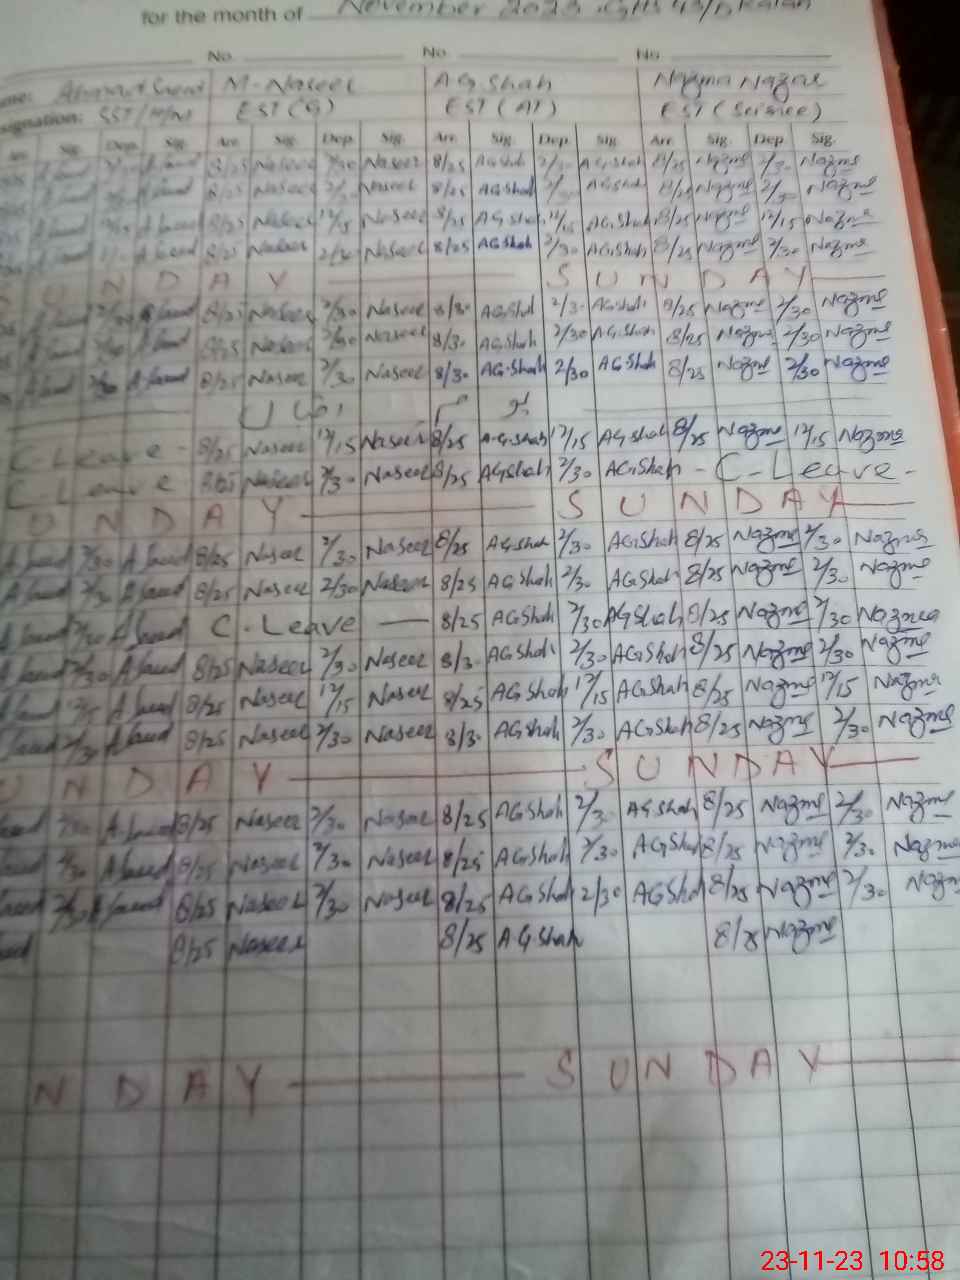 for the month of November 2023 GHS
No. No. No.
Name: Ahmad M-Naseer AG Shah Nazma Nazar
Designation: SST EST (G) EST (AT) EST (Science)
Arr. Sig. Dep. Sig. Arr. Sig. Dep. Sig. Arr. Sig. Dep. Sig. Arr. Sig. Dep. Sig.
8/25 Naseer 2/30 Naseer 8/25 AGShah 2/30 AGShah 8/25 Nazma 2/30 Nazma
8/25 Naseer Naseer 8/25 AGShah AGShah 8/25 Nazma 2/30 Nazma
8/25 Naseer 12/15 Naseer 8/25 AGShah 12/15 AGShah 8/25 Nazma 12/15 Nazma
8/25 Naseer 2/30 Naseer 8/25 AGShah 2/30 AGShah 8/25 Nazma 2/30 Nazma
S U N D A Y S U N D A Y
8/25 Naseer 2/30 Naseer 8/30 AGShah 2/30 AGShah 8/25 Nazma 2/30 Nazma
8/25 Naseer 2/30 Naseer 8/30 AGShah 2/30 AGShah 8/25 Nazma 2/30 Nazma
A Saeed 2/30 A Saeed 8/25 Naseer 2/30 Naseer 8/30 AG·Shah 2/30 AG·Shah 8/25 Nazma 2/30 Nazma
C-Leave 8/25 Naseer 12/15 Naseer 8/25 A·G·Shah 12/15 AGShah 8/25 Nazma 12/15 Nazma
C-Leave 8/25 Naseer 2/30 Naseer 8/25 AGShah 2/30 AGShah - C-Leave -
U N D A Y S U N D A Y
A Saeed 2/30 A Saeed 8/25 Naseer 2/30 Naseer 8/25 AGShah 2/30 AGShah 8/25 Nazma 2/30 Nazma
A Saeed 2/30 A Saeed 8/25 Naseer 2/30 Naseer 8/25 AGShah 2/30 AGShah 8/25 Nazma 2/30 Nazma
A Saeed 2/30 A Saeed C-Leave 8/25 AGShah 2/30 AGShah 8/25 Nazma 2/30 Nazma
A Saeed 2/30 A Saeed 8/25 Naseer 2/30 Naseer 8/30 AGShah 2/30 AGShah 8/25 Nazma 2/30 Nazma
A Saeed 12/15 A Saeed 8/25 Naseer 12/15 Naseer 8/25 AGShah 12/15 AGShah 8/25 Nazma 12/15 Nazma
Saeed 2/30 A Saeed 8/25 Naseer 2/30 Naseer 8/30 AGShah 2/30 AGShah 8/25 Nazma 2/30 Nazma
U N D A Y S U N D A Y
Saeed 2/30 A·Saeed 8/25 Naseer 2/30 Naseer 8/25 AGShah 2/30 AGShah 8/25 Nazma 2/30 Nazma
Saeed 2/30 A Saeed 8/25 Naseer 2/30 Naseer 8/25 AGShah 2/30 AGShah 8/25 Nazma 2/30 Nazma
Saeed 2/30 A Saeed 8/25 Naseer 2/30 Naseer 8/25 AGShah 2/30 AGShah 8/25 Nazma 2/30 Nazm
8/25 Naseer 8/25 A·G·Shah 8/25 Nazma
N D A Y S U N D A Y
23-11-23 10:58